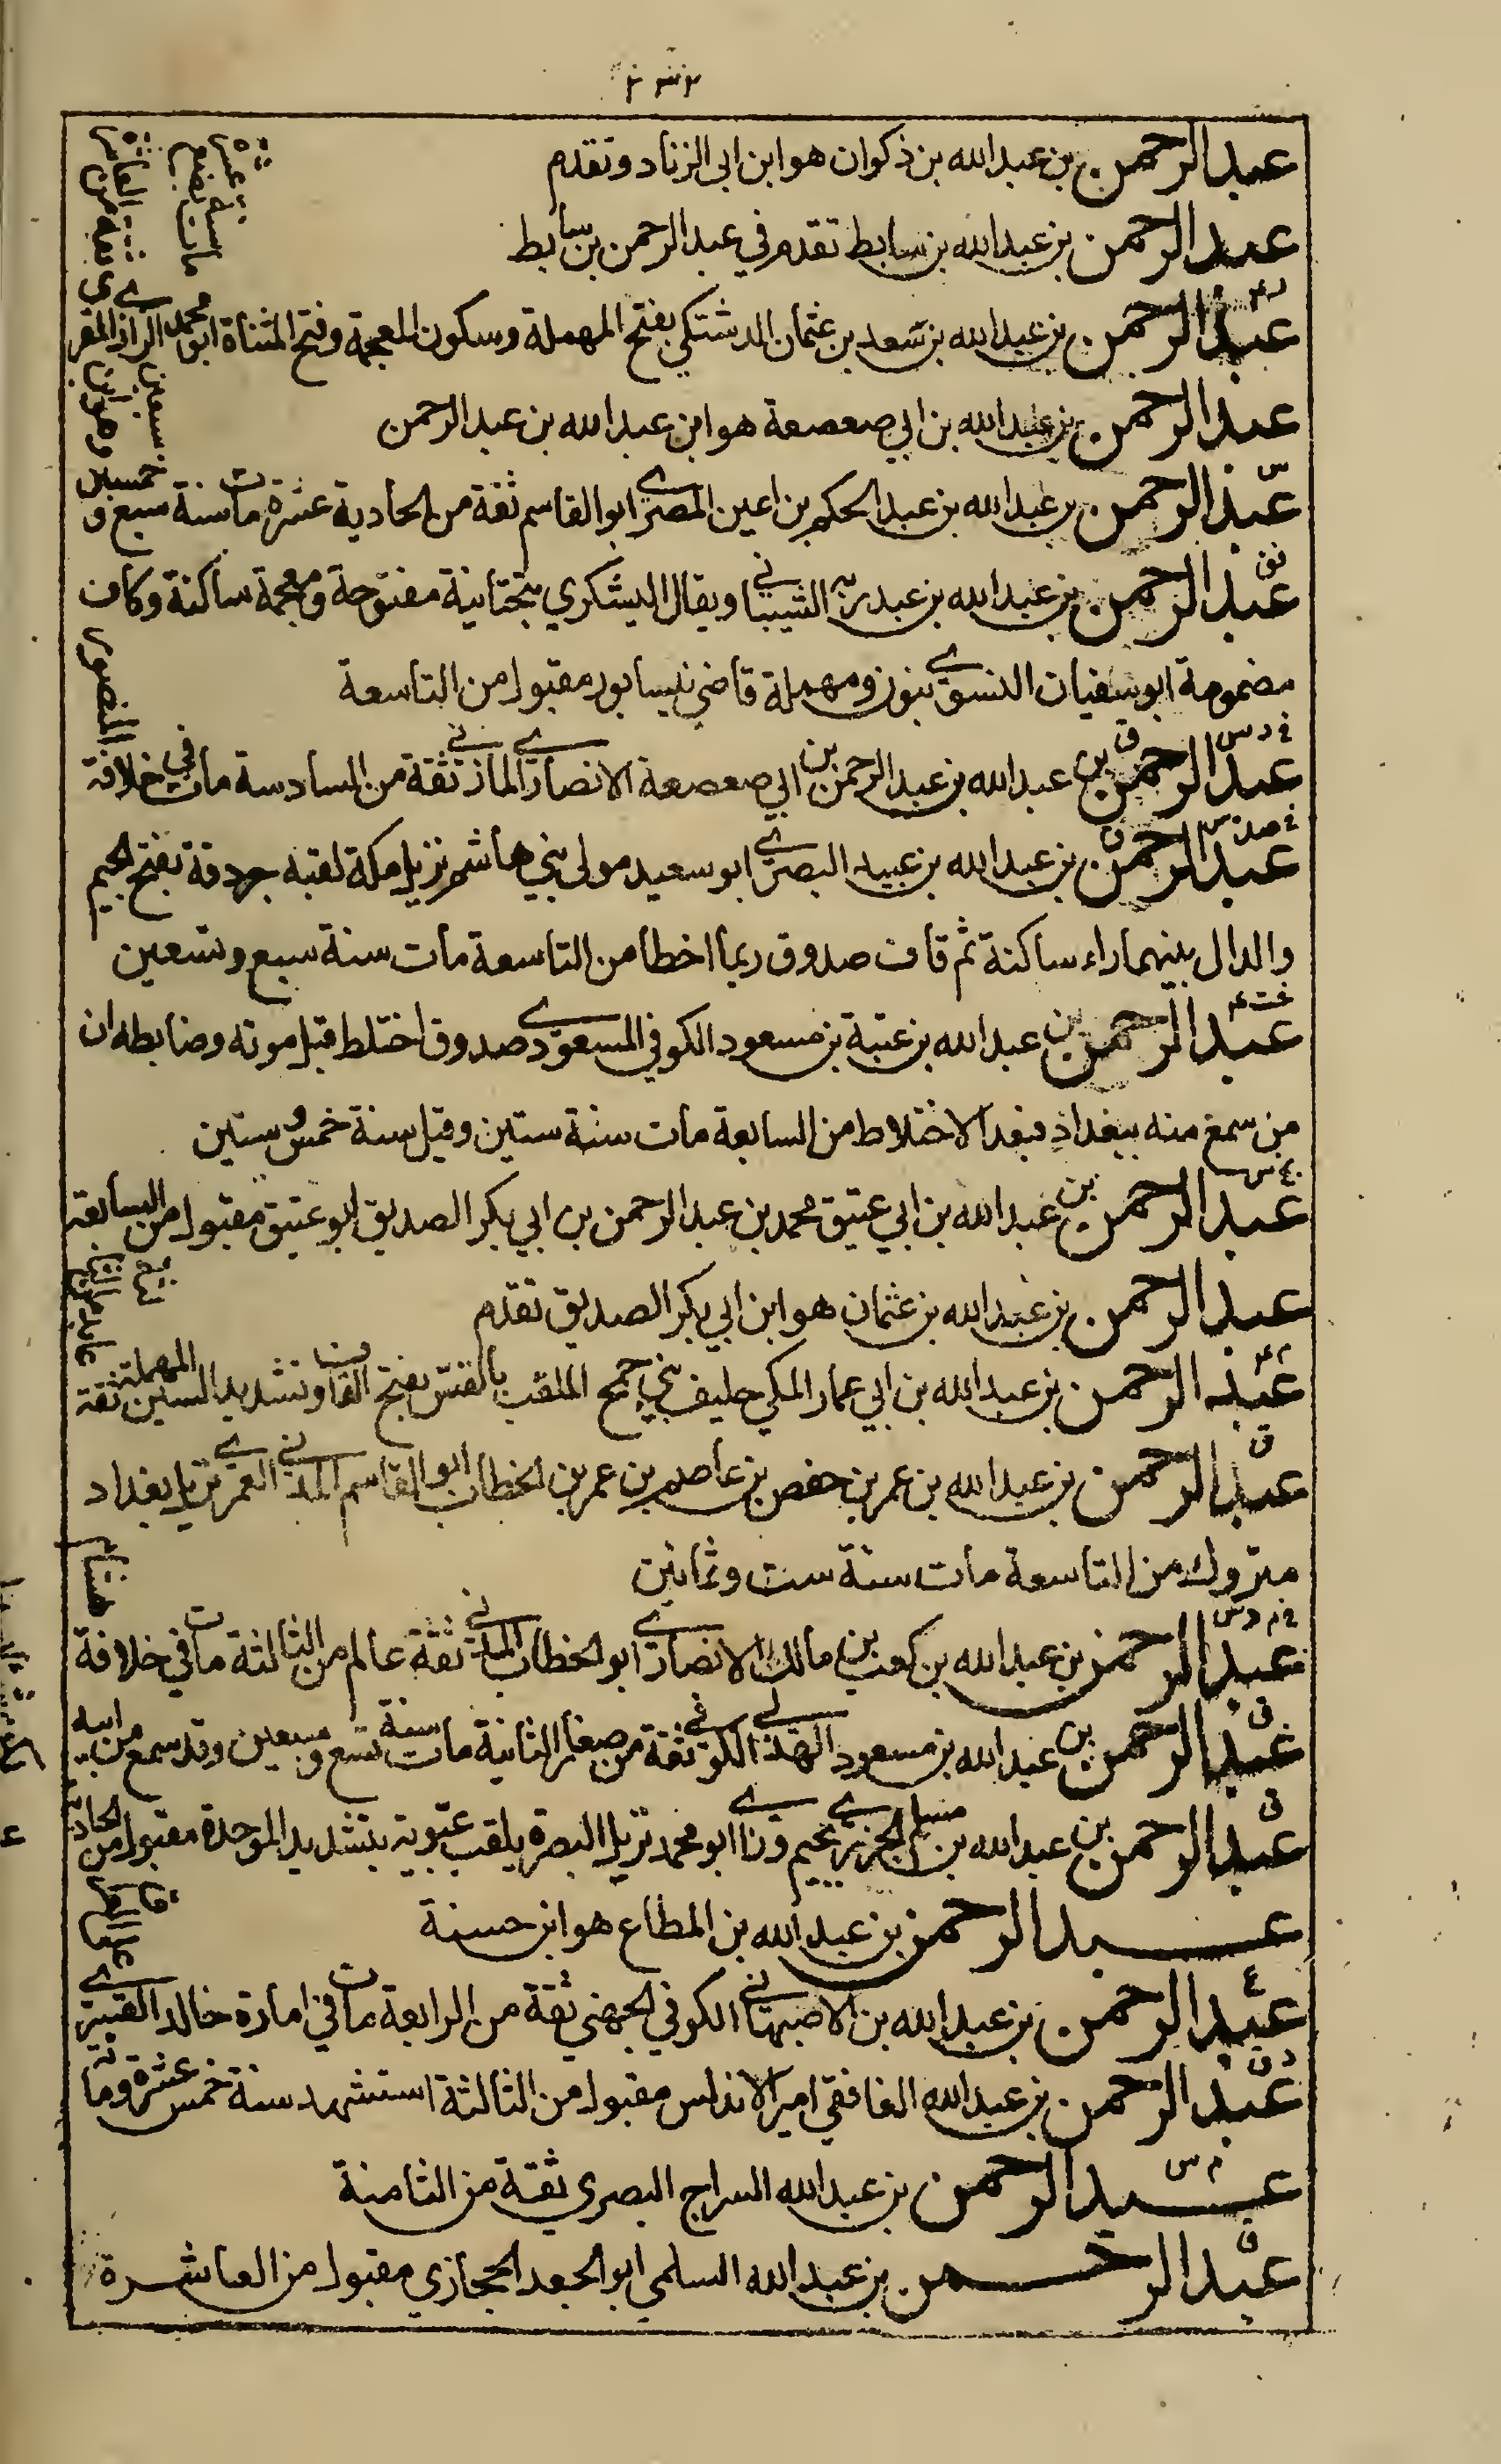 عبد الرحمن بن عبد الله بن ذكوان هو ابن ابي الزناد وتقدم
عبد الرحمن بن عبد الله بن سابط تقدم في عبد الرحمن بن سابط
عبد الرحمن بن عبد الله بن سعد بن عثمان الدشتكي بفتح المهملة وسكون المعجمة وفتح المثناة ابو محمد الرازي المقرى
عبد الرحمن بن عبد الله بن ابي صعصعة هو ابن عبد الله بن عبد الرحمن
عبد الرحمن بن عبد الله بن عبد الحكم بن اعين المصرى ابو القاسم ثقة من الحادية عشرة مات سنة سبع و خمسين
عبد الرحمن بن عبد الله بن عبد ربه الشيباني ويقال اليشكري بتحتانية مفتوحة ومعجمة ساكنة وكاف
مضمومة ابو سفيان النسوى بنون ومهملة قاضي نيسابور مقبول من التاسعة
عبد الرحمن بن عبد الله بن عبد الرحمن بن ابي صعصعة الانصارى المازني ثقة من السادسة مات في خلافة المنصور
عبد الرحمن بن عبد الله بن عبيد البصرى ابو سعيد مولى بني هاشم نزيل مكة لقبه جردقة بفتح الجيم
والدال بينهما راء ساكنة ثم قاف صدوق ربما اخطأ من التاسعة مات سنة سبع وتسعين
عبد الرحمن بن عبد الله بن عتبة بن مسعود الكوفي المسعودى صدوق اختلط قبل موته وضابطه ان
من سمع منه ببغداد فبعد الاختلاط من السابعة مات سنة ستين وقيل سنة خمس وستين
عبد الرحمن بن عبد الله بن ابي عتيق محمد بن عبد الرحمن بن ابي بكر الصديق ابو عتيق مقبول من السابعة
عبد الرحمن بن عبد الله بن عثمان هو ابن ابي بكر الصديق تقدم
عبد الرحمن بن عبد الله بن ابي عمار المكي حليف بني جمح الملقب بالقس بفتح القاف وتشديد السين المهملة ثقة
عبد الرحمن بن عبد الله بن عمر بن حفص بن عاصم بن عمر بن الخطاب ابو القاسم المدني العمرى نزيل بغداد
متروك من التاسعة مات سنة ست وثمانين
عبد الرحمن بن عبد الله بن كعب بن مالك الانصارى ابو الخطاب المدني ثقة عالم من الثالثة مات في خلافة هشام
عبد الرحمن بن عبد الله بن مسعود الهذلي الكوفي ثقة من صغار الثانية مات سنة تسع وسبعين وقد سمع من ابيه
عبد الرحمن بن عبد الله بن مسلم الجزرى بجيم وزا ابو محمد نزيل البصرة يلقب عبويه بتشديد الموحدة مقبول من الحادية
عبد الرحمن بن عبد الله بن المطاع هو ابن حسنة
عبد الرحمن بن عبد الله بن الاصبهاني الكوفي الجهني ثقة من الرابعة مات في امارة خالد القسرى على العراق
عبد الرحمن بن عبد الله الغافقي امير الاندلس مقبول من الثالثة استشهد سنة خمس عشرة ومائة
عبد الرحمن بن عبد الله السراج البصري ثقة من الثامنة
عبد الرحمن بن عبد الله السلمي ابو الجعد الحجازي مقبول من العاشرة